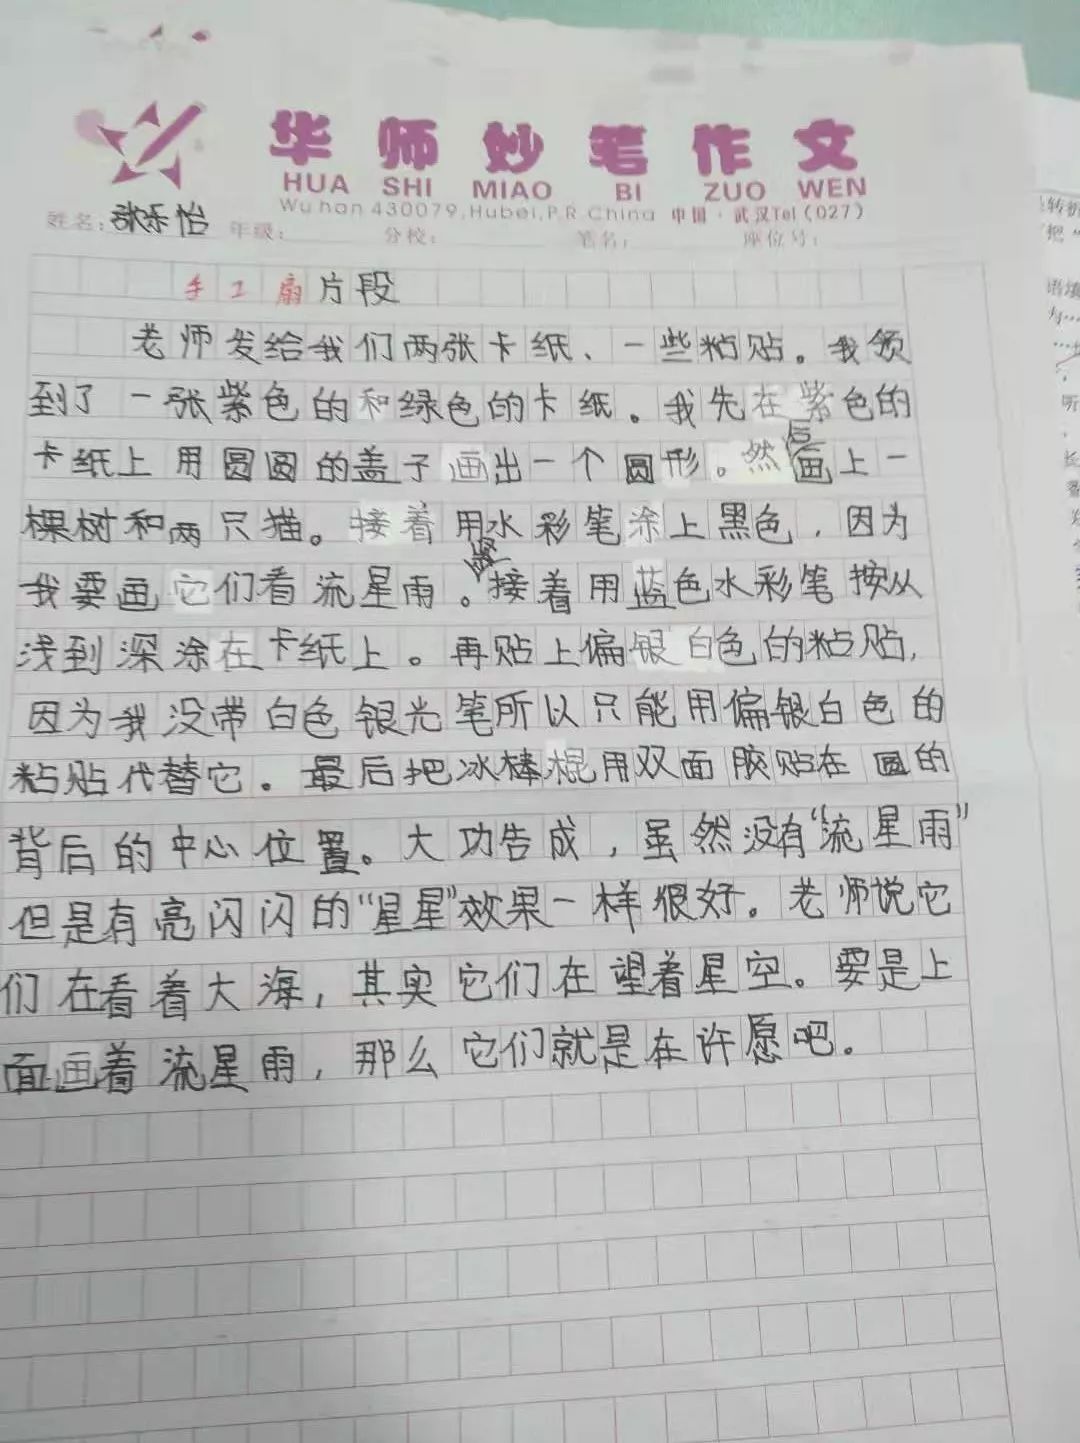 华师妙笔作文
HUA SHI MIAO BI ZUO WEN
Wuhan 430079, Hubei, P.R.China 中国·武汉Tel(027)
姓名:张乐怡 年级: 分校: 笔名: 座位号:
手工扇片段
老师发给我们两张卡纸、一些粘贴。我领
到了一张紫色的和绿色的卡纸。我先在紫色的
卡纸上用圆圆的盖子画出一个圆形。然后画上一
棵树和两只猫。接着用水彩笔涂上黑色，因为
我要画它们看流星雨。接着用蓝色水彩笔按从
浅到深涂在卡纸上。再贴上偏银白色的粘贴，
因为我没带白色银光笔所以只能用偏银白色的
粘贴代替它。最后把冰棒棍用双面胶贴在圆的
背后的中心位置。大功告成，虽然没有“流星雨”
但是有亮闪闪的“星星”效果一样很好。老师说它
们在看着大海，其实它们在望着星空。要是上
面画着流星雨，那么它们就是在许愿吧。
转折
把“
语填
为…
听
长